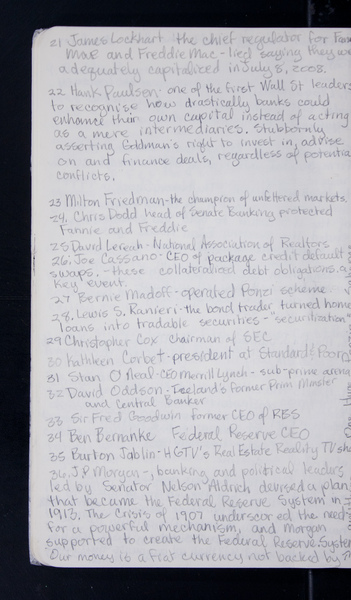 21 James Lockhart the chief regulator for Fannie
Mae and Freddie Mac - lied saying they were
adequately capitalized in July 8, 2008.
22 Hank Paulsen - one of the first Wall St leaders
to recognise how drastically banks could
enhance their own capital instead of acting
as a mere intermediaries. Stubbornly
asserting Goldman's right to invest in, advise
on and finance deals, regardless of potential
conflicts.
23 Milton Friedman - the champion of unfettered markets.
24. Chris Dodd head of Senate Banking protected
Fannie and Freddie
25 David Lereah - National Association of Realtors
26. Joe Cassano - CEO of package credit default
swaps. - these collateralized debt obligations. a
key event.
27 Bernie Madoff - operated Ponzi scheme
28. Lewis S. Ranieri - the bond trader turned home
loans into tradable securities - "securitization"
29 Christopher Cox chairman of SEC
30 Kathleen Corbet - president at Standard & Poor
31 Stan O'Neal - CEO Merrill Lynch - sub-prime arena
32 David Oddson - Iceland's former Prim Minister
and Central Banker
33 Sir Fred Goodwin former CEO of RBS
34 Ben Bernanke Federal Reserve CEO
35 Burton Jablin - HGTV's Real Estate Reality TV sho
36. J.P. Morgan -, banking and political leaders
led by Senator Nelson Aldrich devised a plan
that became the Federal Reserve System in
1913. The crisis of 1907 underscored the need
for a powerful mechanism, and Morgan
supported to create the Federal Reserve System
"Our money is a fiat currency not backed by